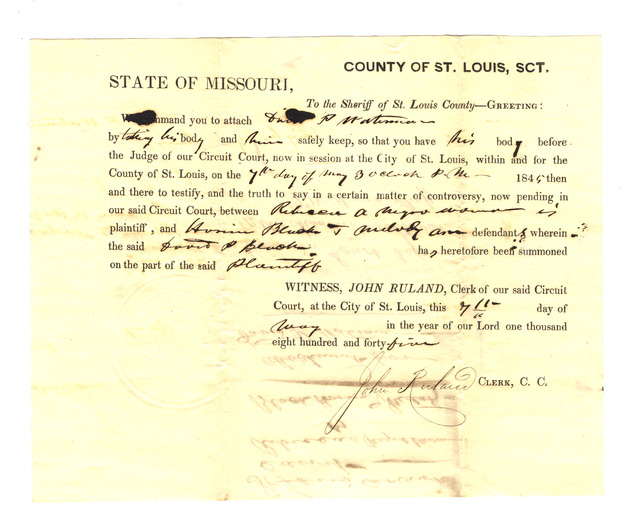 COUNTY OF ST. LOUIS, SCT.
STATE OF MISSOURI,
To the Sheriff of St. Louis County—GREETING:
We command you to attach David P Waterman
by taking his body and him safely keep, so that you have his body before
the Judge of our Circuit Court, now in session at the City of St. Louis, within and for the
County of St. Louis, on the 7th day of May 3 oclock P. M— 1845 then
and there to testify, and the truth to say in a certain matter of controversy, now pending in
our said Circuit Court, between Rebecca a Negro woman is
plaintiff, and Black & Melody are defendants wherein
the said David P Black has heretofore been summoned
on the part of the said Plaintiff
WITNESS, JOHN RULAND, Clerk of our said Circuit
Court, at the City of St. Louis, this 7th day of
May in the year of our Lord one thousand
eight hundred and forty-five
John Ruland CLERK, C. C.